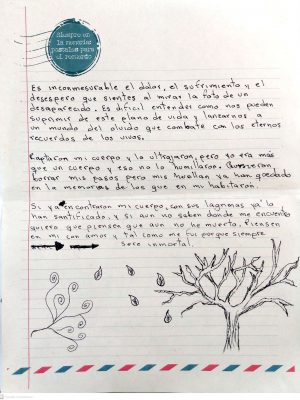 Siempre en
la memoria:
postales para
el recuerdo
Es inconmesurable el dolor, el sufrimiento y el
desespero que sientes al mirar la foto de un
desaparecido. Es dificil entender como nos pueden
suprimir de este plano de vida y lanzarnos a
un mundo del olvido que combate con los eternos
recuerdos de los vivos.
Raptaron mi cuerpo y lo ultrajaron, pero yo era más
que un cuerpo y eso no lo humillaron. Quisieron
borrar mis pasos pero mis huellas ya han quedado
en la memorias de los que en mi habitaron.
Si ya encontraron mi cuerpo, con sus lágrimas ya lo
han santificado. y si aun no saben donde me encuentro
quiero que piensen que aun no he muerto. Piensen
en mi con amor y tal como me fui porque siempre
Seré inmortal.